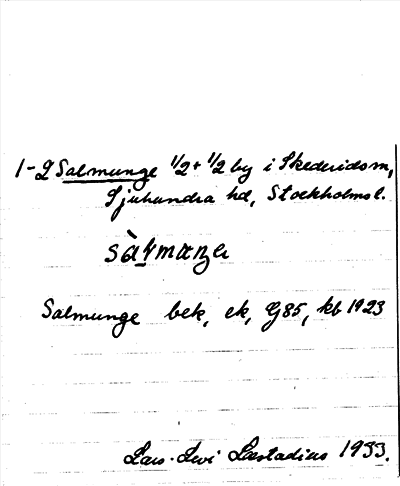 1-2 Salmunge 1/2 + 1/2 by i Skederidsm,
Sjuhundra hd, Stockholms l.
Salmunge bek, ek, G85, kb 1923
Lars-Levi Læstadius 1933.